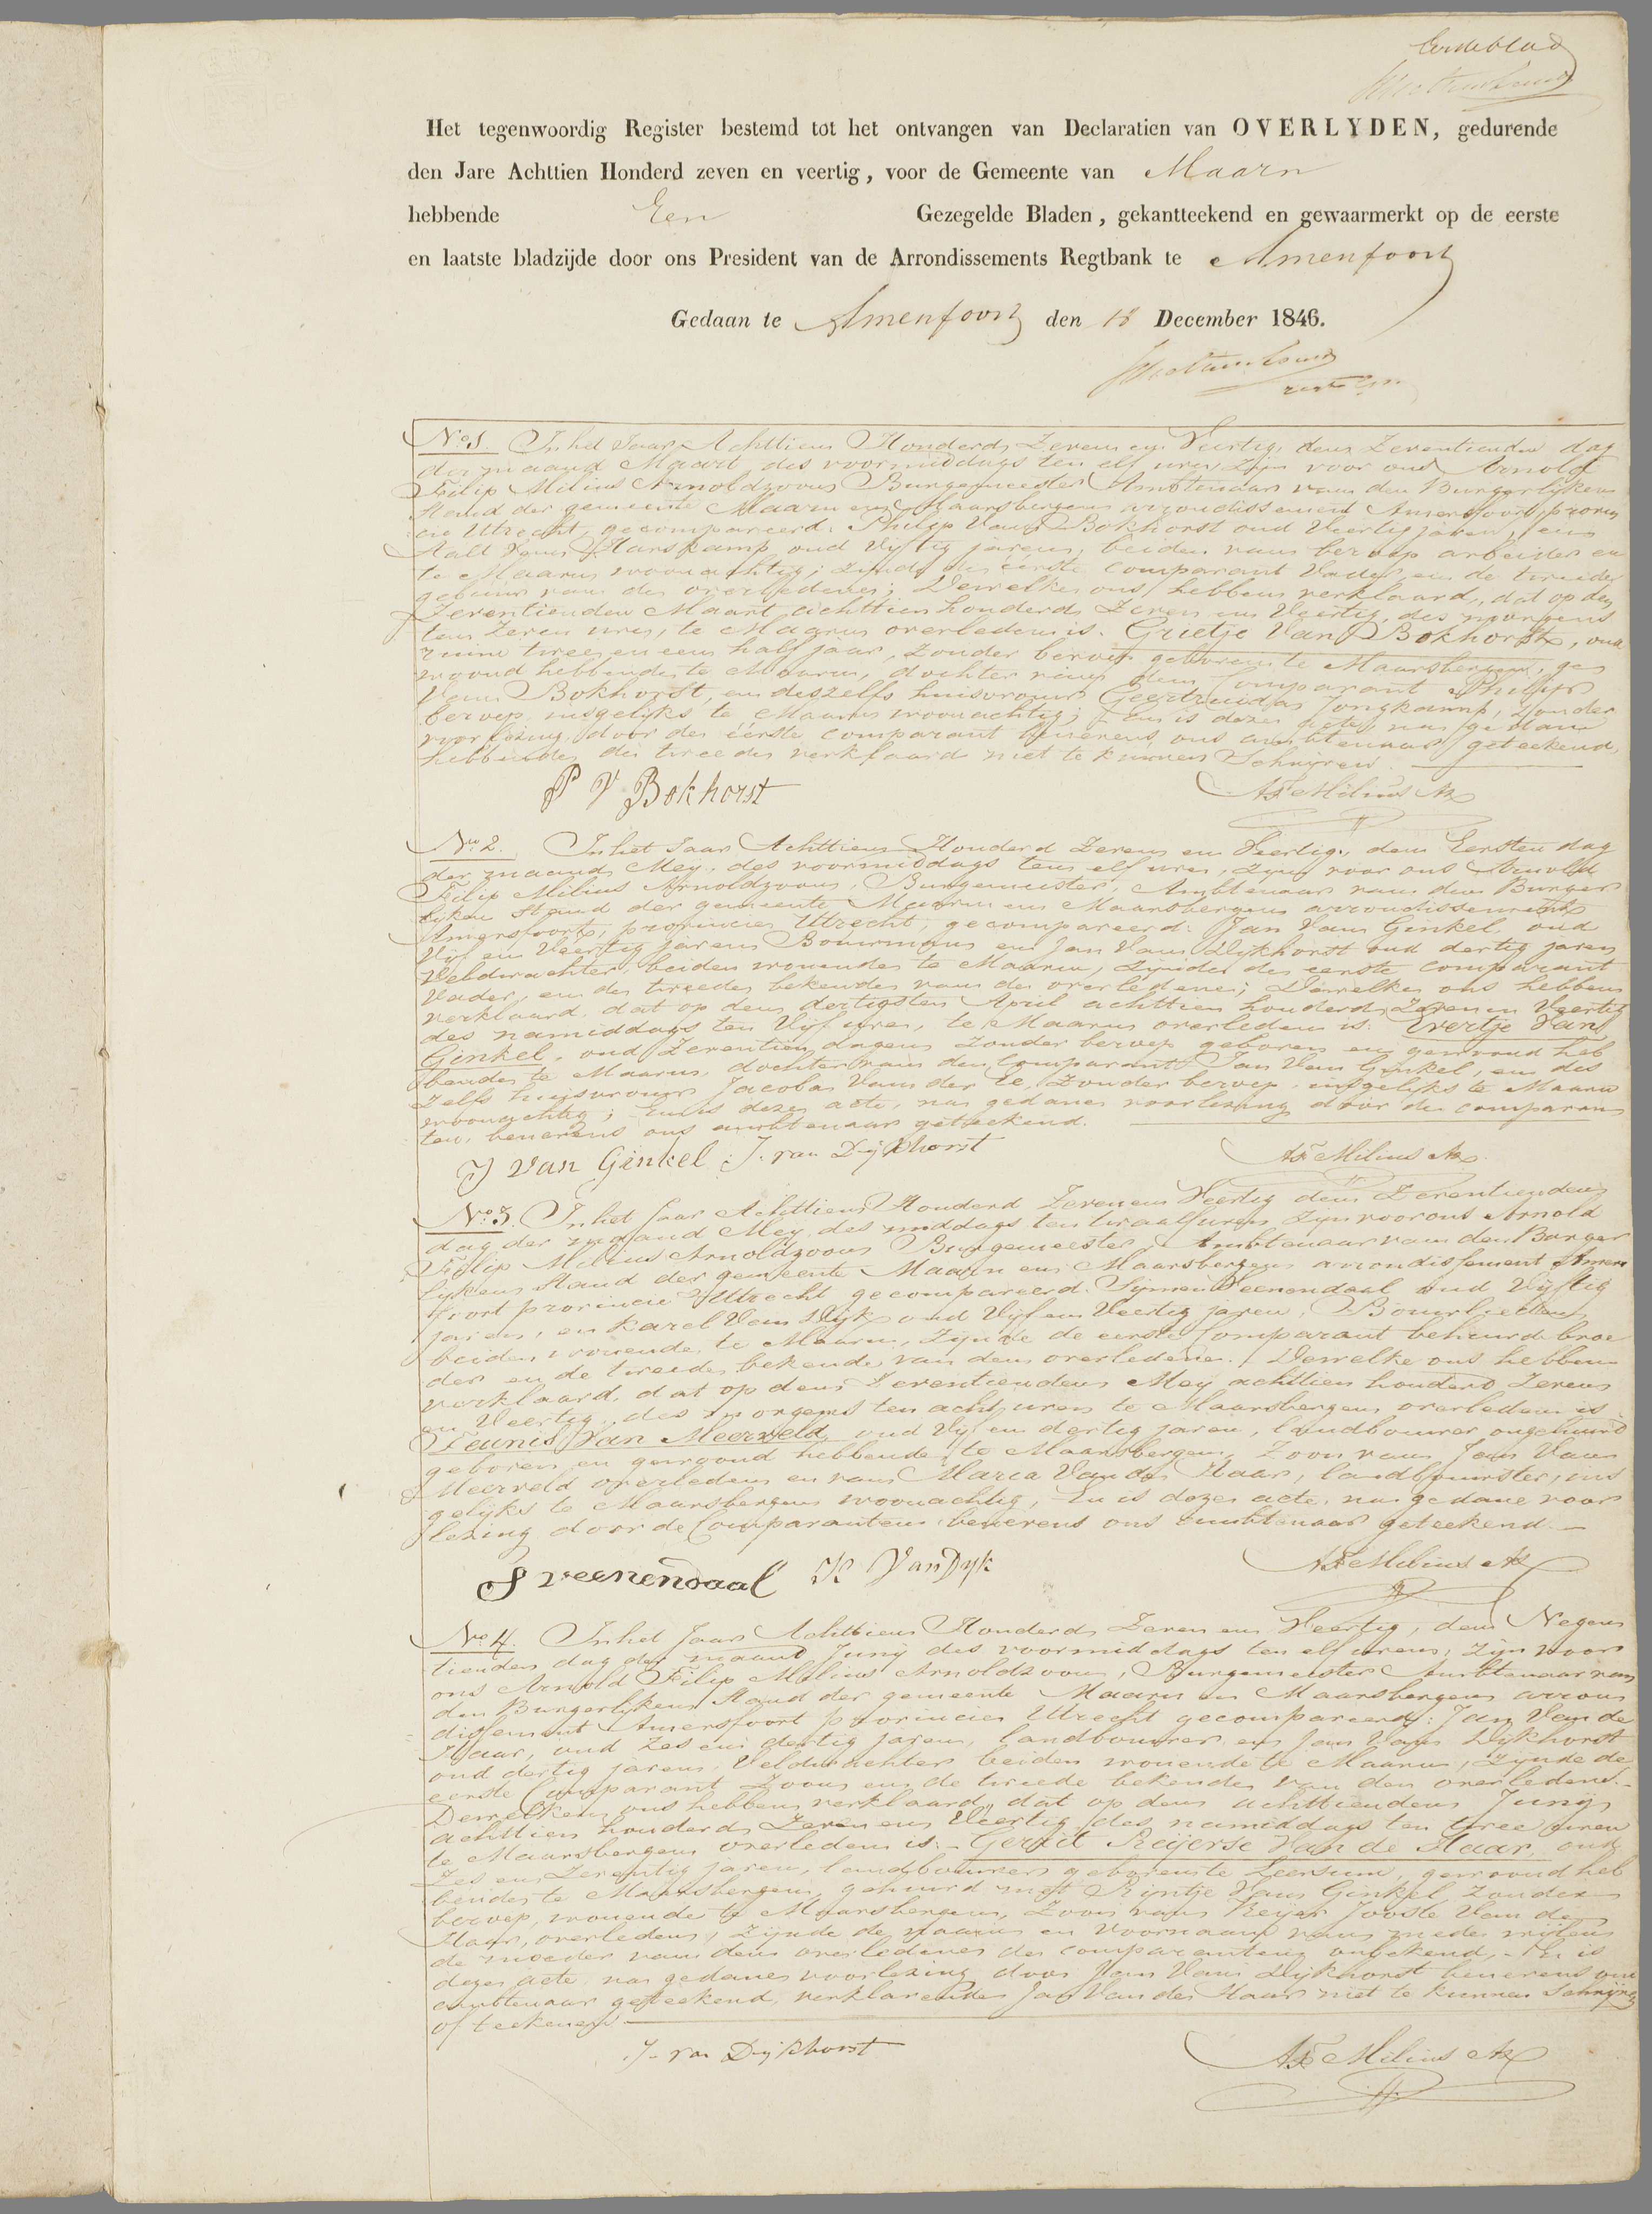 Eerste blad
Het tegenwoordig Register bestemd tot het ontvangen van Declaratien van OVERLYDEN, gedurende
den Jare Achttien Honderd zeven en veertig, voor de Gemeente van Maarn
hebbende Een Gezegelde Bladen, gekantteekend en gewaarmerkt op de eerste
en laatste bladzijde door ons President van de Arrondissements Regtbank te Amersfoort
Gedaan te Amersfoort den 18 December 1846.
No 1. In het Jaar Achttien Honderd Zeven en Veertig, den Zeventienden dag
der maand Maart des voormiddags ten elf uren zijn voor ons Arnold
Filip Milius Arnoldzoon Burgemeester Ambtenaar van den Burgerlijken
Stand der gemeente Maarn en Maarsbergen arrondissement Amersfoort, provin
cie Utrecht, gecompareerd: Philip Van Bokhorst oud Veertig jaren, en
Aalt Van Harskamp oud Vijftig jaren, beiden van beroep arbeider en
te Maarn woonachtig; zijnde de eerste comparant Vader en de tweede
gebuur van de overledene; Dewelke ons hebben verklaard, dat op den
Zeventienden Maart achttien honderd Zeven en Veertig, des morgens
ten Zeven uren, te Maarn overleden is. Grietje Van Bokhorst, oud
ruim twee en een half jaar, zonder beroep geboren te Maarsbergen, ge
woond hebbende te Maarn, dochter van den Comparant Philip
Van Bokhorst, en deszelfs huisvrouw Geertruida Jongkamp, zonder
beroep, insgelijks te Maarn woonachtig; En is deze acte na gedane
voorlezing door de eerste comparant benevens ons ambtenaar geteekend,
hebbende de tweede verklaard niet te kunnen Schrijven.
P V Bokhorst AF Milius Az
No 2. In het Jaar Achttien Honderd Zeven en Veertig, den Eersten dag
der maand Mey, des voormiddags ten elf uren, zijn voor ons Arnold
Filip Milius Arnoldzoon, Burgemeester, Ambtenaar van den Burger
lijken Stand der gemeente Maarn en Maarsbergen arrondissement
Amersfoort, provincie Utrecht, gecompareerd: Jan Van Ginkel, oud
Vijf en Veertig jaren Bouwman en Jan Van Dijkhorst oud dertig jaren
Veldwachter, beiden wonende te Maarn, zijnde de eerste comparant
Vader, en de tweede bekende van de overledene; Dewelke ons hebben
verklaard, dat op den dertigsten April achttien honderd Zeven en Veertig
des namiddags ten Vijf uren, te Maarn overleden is. Evertje Van
Ginkel, oud Zeventien dagen zonder beroep geboren en gewoond heb
bende te Maarn, dochter van den Comparant Jan Van Ginkel, en des
zelfs huisvrouw Jacoba Van der Lee, zonder beroep, insgelijks te Maarn
woonachtig; En is deze acte, na gedane voorlezing door de comparan
ten, benevens ons ambtenaar geteekend.
J van Ginkel J. van Dijkhorst AF Milius Az
No 3. In het Jaar Achttien Honderd Zeven en Veertig den Zeventienden
dag der maand Mey, des middags ten twaalf uren, zijn voor ons Arnold
Filip Milius Arnoldzoon Burgemeester, Ambtenaar van den Burger
lijken Stand der gemeente Maarn en Maarsbergen arrondissement Amers
foort provincie Utrecht gecompareerd: Sijmen Veenendaal oud Vijftig
jaren, en Karel Van Dijk oud Vijf en Veertig jaren, Bouwlieden
beiden wonende te Maarn, zijnde de eerste Comparant behuwd broe
der en de tweede bekende van den overledene. Dewelke ons hebben
verklaard, dat op den Zeventienden Mey achttien honderd Zeven
en Veertig, des morgens ten acht uren te Maarsbergen overleden is.
Teunis Van Meerveld, oud Vijf en dertig jaren, landbouwer, ongehuwd
geboren en gewoond hebbende te Maarsbergen, Zoon van Jan Van
Meerveld overleden en van Maria Van de Haar, landbouwster, ins
gelijks te Maarsbergen woonachtig, En is deze acte, na gedane voor
lezing door de Comparanten benevens ons ambtenaar geteekend.
S veenendaal K Van Dyk AF Milius Az
No 4. In het Jaar Achttien Honderd Zeven en Veertig, den Negen
tienden dag der maand Junij des voormiddags ten elf uren, zijn voor
ons Arnold Filip Milius Arnoldzoon, Burgemeester Ambtenaar van
den Burgerlijken Stand der gemeente Maarn en Maarsbergen arron
dissement Amersfoort provincie Utrecht gecompareerd: Jan Van de
Haar, oud zes en dertig jaren, landbouwer en Jan Van Dijkhorst
oud dertig jaren, Veldwachter beiden wonende te Maarn, zijnde de
eerste Comparant Zoon en de tweede bekende van den overledene.
Dewelken ons hebben verklaard, dat op den achttienden Junij
achttien honderd Zeven en Veertig des namiddags ten twee uren
te Maarsbergen overleden is: Gerrit Reijerse Van de Haar, oud
Zes en Zeventig jaren, landbouwer, geboren te Leersum, gewoond heb
bende te Maarsbergen, gehuwd met Rijntje Van Ginkel, zonder
beroep, wonende te Maarsbergen, Zoon van Reijer Jooste Van de
Haar, overleden, zijnde de naam en voornaam van mede wijlen
de moeder van den overledene de comparanten onbekend. En is
deze acte, na gedane voorlezing door Jan Van Dijkhorst benevens ons
ambtenaar geteekend, verklarende Jan Van de Haar niet te kunnen Schrijven
of teekenen.
J. van Dijkhorst AF Milius Az